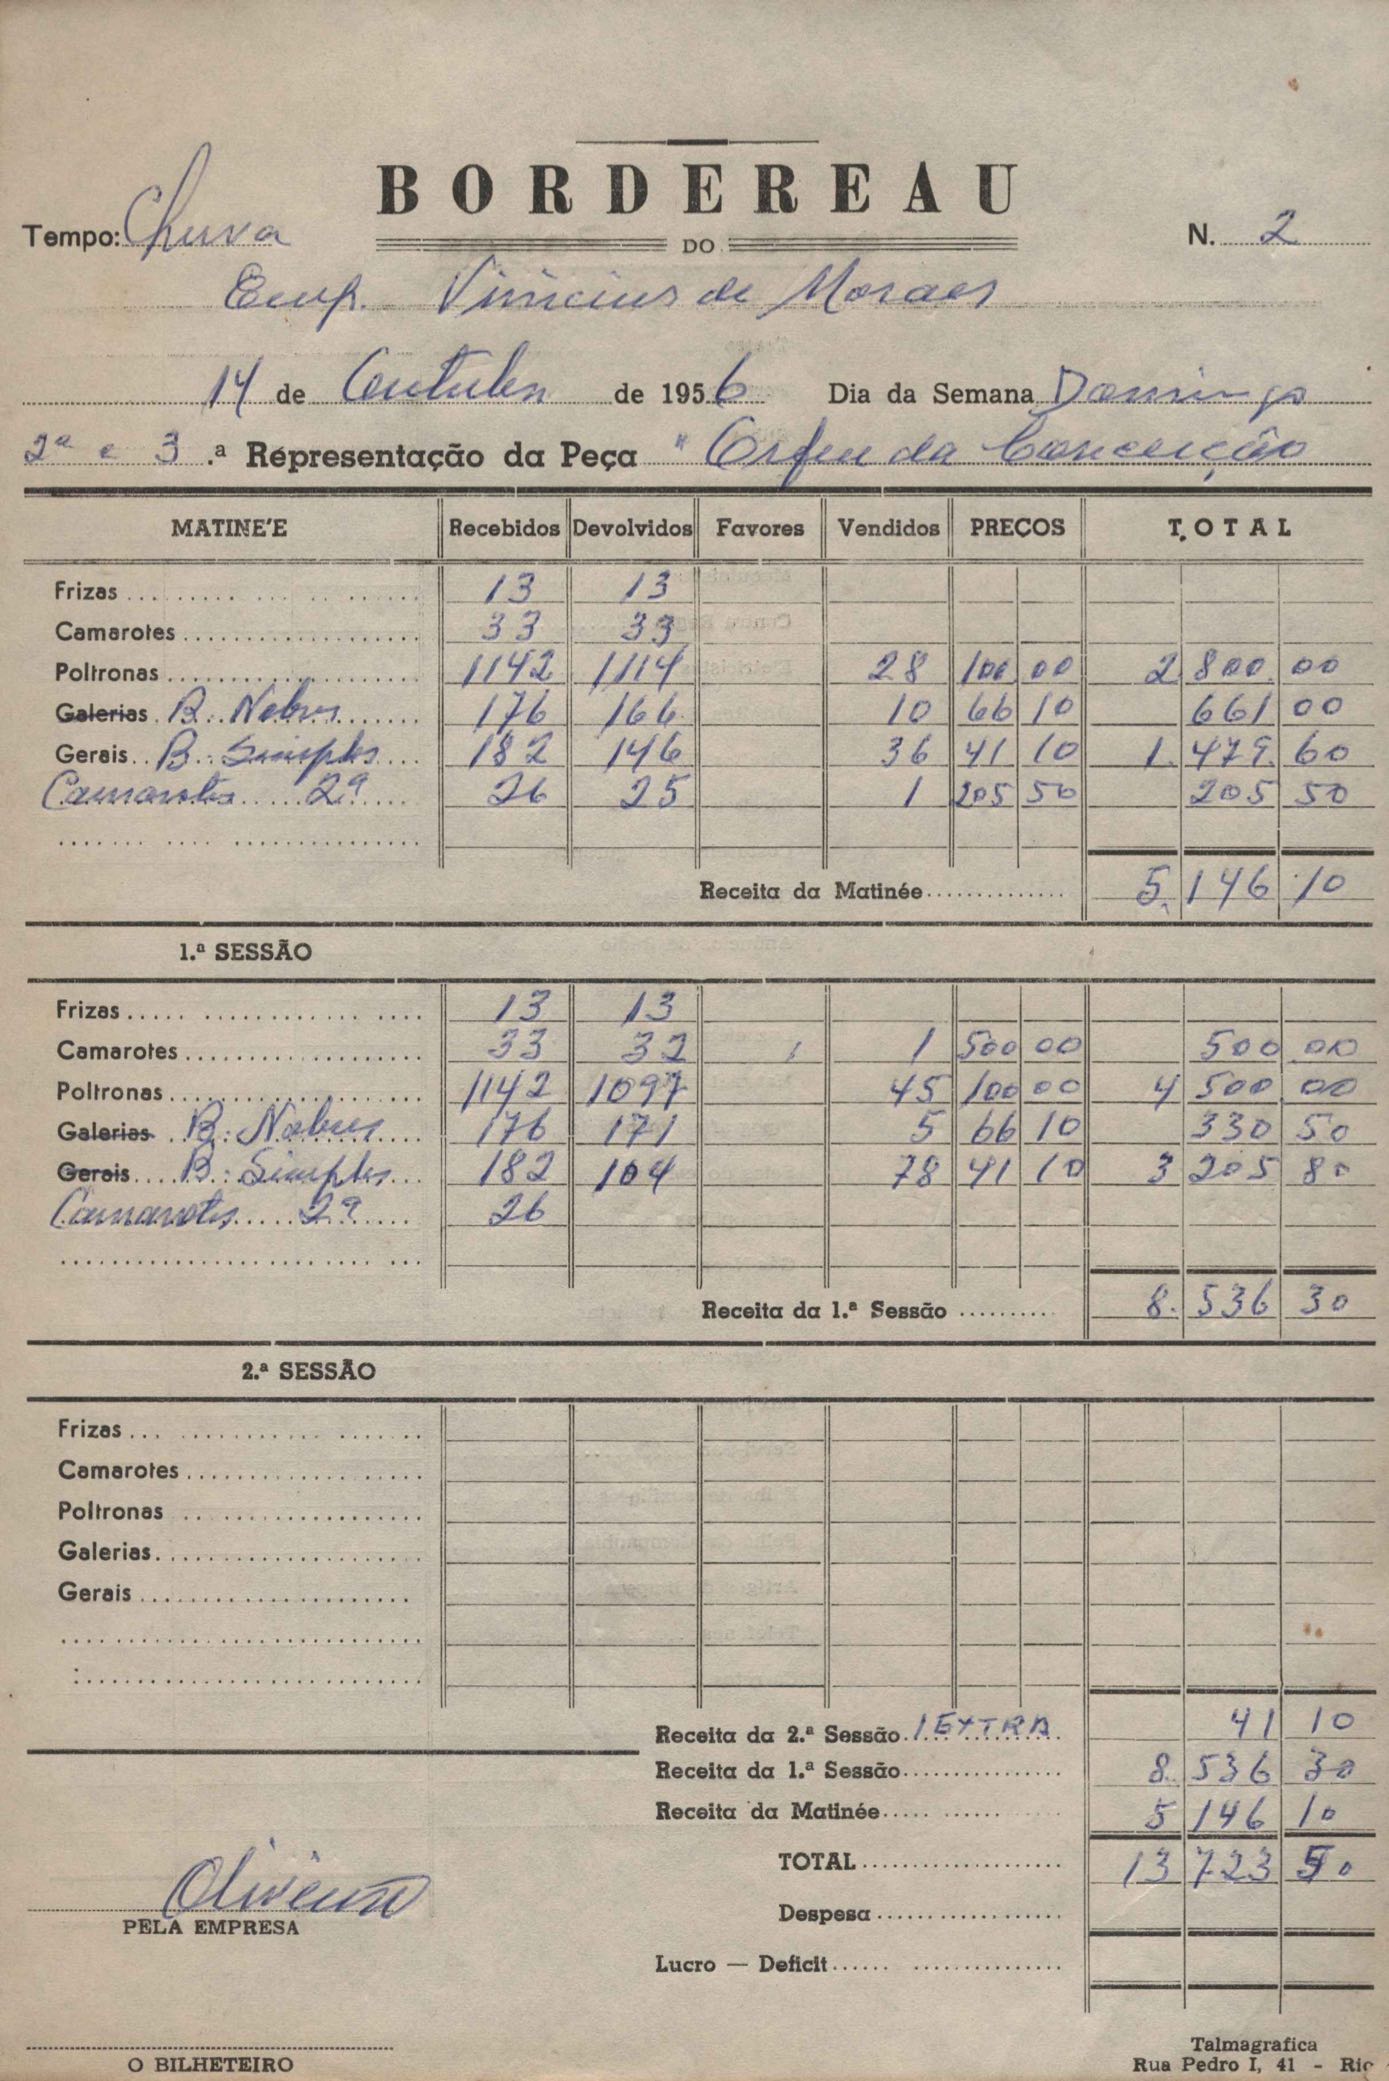 BORDEREAU
Tempo: Chuva
DO
N. 2
Emp. Vinicius de Moraes
14 de Outubro de 1956 Dia da Semana Domingo
2ª e 3.ª Representação da Peça "Orfeu da Conceição
MATINE'E Recebidos Devolvidos Favores Vendidos PREÇOS TOTAL
Frizas 13 13
Camarotes 33 33
Poltronas 1142 1114 28 100 00 2 800 00
Galerias B. Nobres 176 166 10 66 10 661 00
Gerais B. Simples 182 146 36 41 10 1.479.60
Camarotes 2ª 26 25 1 205 50 205 50
Receita da Matinée 5.146 10
1.ª SESSÃO
Frizas 13 13
Camarotes 33 32 1 500 00 500 00
Poltronas 1142 1097 45 100 00 4 500 00
Galerias B. Nobres 176 171 5 66 10 330 50
Gerais B. Simples 182 104 78 41 10 3 205 80
Camarotes 2ª 26
Receita da 1.ª Sessão 8.536 30
2.ª SESSÃO
Frizas
Camarotes
Poltronas
Galerias
Gerais
Receita da 2.ª Sessão 1 EXTRA 41 10
Receita da 1.ª Sessão 8.536 30
Receita da Matinée 5 146 10
TOTAL 13 723 50
Despesa
Lucro — Deficit
Oliveira
PELA EMPRESA
O BILHETEIRO
Talmagrafica
Rua Pedro I, 41 - Rio